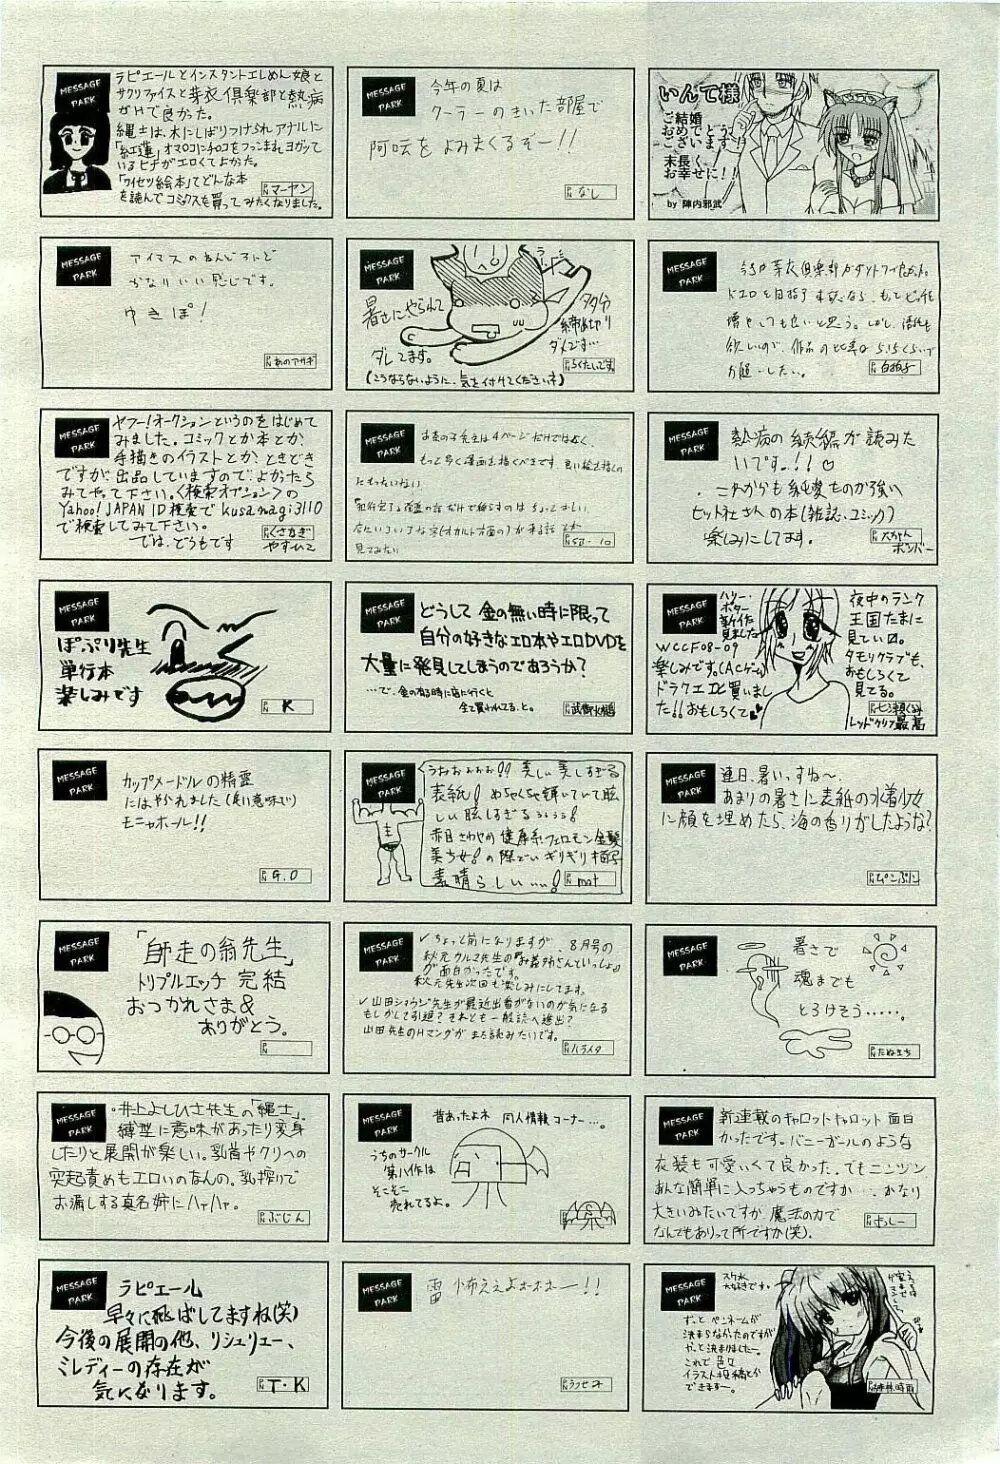 MESSAGE PARK
ラピエールとインスタントエレめん娘と
サクリファイスと芽衣倶楽部と熱病
がHで良かった。
縄士は、木にしばりつけられアナルに
「紅蓮」、オマ○コにチ○コをつっこまれヨガって
いるヒナがエロくてよかった。
「ワイセツ絵本」てどんな本
を読んでコミックスを買ってみたくなりました。
PN マーヤン
MESSAGE PARK
今年の夏は
クーラーのきいた部屋で
阿吽をよみまくるぞー!!
PN なし
いんて様
ご結婚
おめでとう
ございます!
末長く
お幸せに!!
by 陣内邪武
MESSAGE PARK
アイマスのねんどろいど
かなりいい感じです。
ゆきぽ!
PN あのアサギ
MESSAGE PARK
暑さにやられて
ダレてます。
多分
締め切り
ダメです…
(こうならないように、気を付けてくださいネ)
PN らくたいです
MESSAGE PARK
PN 白拍子
MESSAGE PARK
ヤフー!オークションというのをはじめて
みました。コミックとか本とか、
手描きのイラストとか、ときどき
ですが、出品していますので、よかったら
みてやって下さい。<検索オプション>の
Yahoo! JAPAN ID検索で kusanagi3110
で検索してみて下さい。
では、どうもです
PN くさなぎやすひこ
MESSAGE PARK
先生は4ページだけではなく、
もっと多く漫画を描くべきです。良い絵を描くの
にもったいない。
見てみたい
PN SB-10
MESSAGE PARK
熱病の続編が読みた
いです。!!♡
これからも純愛ものが強い
ヒット社さんの本(雑誌、コミック)
楽しみにしてます。
PN 大ちゃんボンバー
MESSAGE PARK
ぽぷり先生
単行本
楽しみです
PN K
MESSAGE PARK
どうして金の無い時に限って
自分の好きなエロ本やエロDVDを
大量に発見してしまうのであろうか?
…で、金の有る時に店に行くと
全て買われてる、と。
PN 武御水鵺
MESSAGE PARK
ハリー・
ポター
新ケイ
見ました
WCCF08-09
楽しみです。(ACゲーム)
ドラクエIと買いまし
た!!おもしろくて♥
夜中のランク
王国たまに
見てい〼。
タモリクラブも、
おもしろくて
見てる。
PN 七瀬くるみ
レッドクリフ最高
MESSAGE PARK
カップメードルの精靈
にはやられました(良い意味で)
モニャホール!!
PN G.O
MESSAGE PARK
うおおおおお!! 美しい 美しすぎる
表紙! めちゃくちゃ輝いていて眩
しい眩しすぎるううう!
赤目さわやか健康系フェロモン金髪
美少女! の際どいギリギリ椅子
素晴らしいいい!
PN mat
MESSAGE PARK
連日、暑いっすね〜。
あまりの暑さに表紙の水着少女
に顔を埋めたら、海の香りがしたような?
PN ピンぷに
MESSAGE PARK
「師走の翁先生」
トリプルエッチ 完結
おつかれさま&
ありがとう。
PN
MESSAGE PARK
✓ちょっと前になりますが、8月号の
秋元カルマ先生の『み姦姉さんといっしょ』
が面白かったです。
秋元先生次回も楽しみにしてます。
✓山田ショウジ先生が最近出番がないのが気になる
もしかして引退? それとも一般誌へ進出?
山田先生のHマンガがまた読みたいです。
PN ハライタ
MESSAGE PARK
暑さで
魂までも
とろけそう……。
PN たぬきち
MESSAGE PARK
・井上よしひさ先生の「縄士」、
縛型に意味があったり変身
したりと展開が楽しい。乳首やクリへの
突起責めもエロいのなんの。乳搾りで
お漏しする真名姉にハァハァ。
PN ぶじん
MESSAGE PARK
昔あったよネ 同人情報コーナー…。
うちのサークル
第八作は
そこそこ
売れてるよ。
PN
MESSAGE PARK
新連載のキャロットキャロット面白
かったです。バニーガールのような
衣装も可愛いくて良かった、でもニンジン
あんな簡単に入っちゃうものですか…、かなり
大きいみたいですか、魔法の力で
なんでもありって所ですか(笑)。
PN さっしー
MESSAGE PARK
ラピエール
早々に飛ばしてますね(笑)
今後の展開の他、リシュリエー、
ミレディーの存在が
気になります。
PN T・K
MESSAGE PARK
雷 怖ええよォォネー!!
PN うつせみ
MESSAGE PARK
スク水
大好きです。
ずっとペンネームが
決まらなかったのですが
やっと決まりましたー。
これで色々
イラスト投稿とか
できますー。